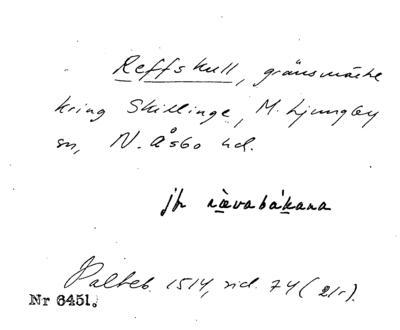 Reffskull, gränsmärke
kring Skillinge, M. Ljungby
sn, N. Åsbo hd.
jfr rævabákana
Palteb. 1514, sid. 74 (21r).
Nr 6451.